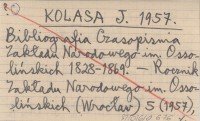 KOLASA J. 1957.
Bibliografia Czasopisma
Zakładu Narodowego im. Osso-
lińskich 1828-1869. - Rocznik
Zakładu Narodowego im. Osso-
lińskich (Wrocław) 5 (1957),